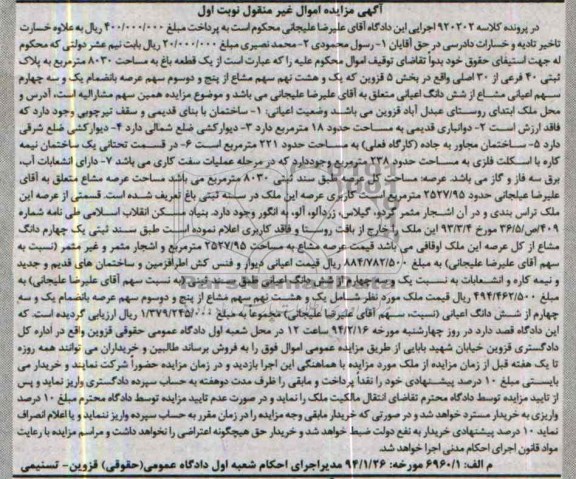 آگهی مزایده اموال غیر منقول نوبت اول
در پرونده کلاسه ۹۲۰۲۰۲ اجرایی این دادگاه آقای علیرضا علیجانی محکوم است به پرداخت مبلغ ۴۰۰/۰۰۰/۰۰۰ ریال به علاوه خسارت
تاخیر تادیه و خسارات دادرسی در حق آقایان ۱- رسول محمودی ۲- محمد نصیری مبلغ ۲۰/۰۰۰/۰۰۰ ریال بابت نیم عشر دولتی که محکوم
له جهت استیفای حقوق خود بدوا تقاضای توقیف اموال محکوم علیه را که عبارت است از یک قطعه باغ به مساحت ۸۰۳۰ مترمربع به پلاک
ثبتی ۴۰ فرعی از ۳۰ اصلی واقع در بخش ۵ قزوین که یک و هشت نهم سهم مشاع از پنج و دوسوم سهم عرصه بانضمام یک و سه چهارم
سهم اعیانی مشاع از شش دانگ اعیانی متعلق به آقای علیرضا علیجانی می باشد و موضوع مزایده همین سهم مشارالیه است، آدرس و
محل ملک ابتدای روستای عبدل آباد قزوین می باشد وضعیت اعیانی: ۱- ساختمان با بنای قدیمی و سقف تیرچوبی وجود دارد که
فاقد ارزش است ۲- دوانباری قدیمی به مساحت حدود ۱۸ مترمربع دارد ۳- دیوارکشی ضلع شمالی دارد ۴- دیوارکشی ضلع شرقی
دارد ۵- ساختمان مجاور به جاده (کارگاه فعلی) به مساحت حدود ۲۲۱ مترمربع است ۶- در قسمت تحتانی یک ساختمان نیمه
کاره با اسکلت فلزی به مساحت حدود ۲۳۸ مترمربع وجود دارد که در مرحله عملیات سفت کاری می باشد ۷- دارای انشعابات آب،
برق سه فاز و گاز می باشد. عرصه: مساحت عرصه طبق سند ثبتی ۸۰۳۰ مترمربع می باشد مساحت عرصه مشاع متعلق به آقای
علیرضا علیجانی حدود ۲۵۲۷/۹۵ مترمربع است کاربری عرصه این ملک در سند ثبتی باغ تعریف شده است. قسمتی از عرصه این
ملک تراس بندی و در آن اشجار مثمر گردو، گیلاس، زردآلو، آلو، به انگور وجود دارد. بنیاد مسکن انقلاب اسلامی طی نامه شماره
۴۰۹/ص/۳۶/۵ مورخ ۹۳/۳/۴ این ملک را خارج از بافت روستا و فاقد کاربری اعلام نموده است طبق سند ثبتی یک چهارم دانگ
مشاع از کل عرصه این ملک اوقافی می باشد قیمت عرصه مشاع به مساحت ۲۵۲۷/۹۵ مترمربع و اشجار مثمر و غیر مثمر (نسبت به
سهم آقای علیرضا علیجانی) به مبلغ ۸۸۴/۷۸۲/۵۰۰ ریال قیمت اعیانی دیوار و فنس کش اطراف زمین و ساختمان های قدیم و جدید
و نیمه کاره و انشعابات به نسبت یک و سه چهارم از شش دانگ اعیانی طبق سند ثبتی (به نسبت سهم آقای علیرضا علیجانی) به
مبلغ ۴۹۴/۴۶۲/۵۰۰ ریال قیمت ملک مورد نظر شامل یک و هشت نهم سهم مشاع از پنج و دوسوم سهم عرصه بانضمام یک و سه
چهارم از شش دانگ اعیانی (نسبت سهم آقای علیرضا علیجانی) مجموعا به مبلغ ۱/۳۷۹/۲۴۵/۰۰۰ ریال ارزیابی گردیده است. که
این دادگاه قصد دارد در روز چهارشنبه مورخه ۹۴/۲/۱۶ ساعت ۱۲ در محل شعبه اول دادگاه عمومی حقوقی قزوین واقع در اداره کل
دادگستری قزوین خیابان شهید بابایی از طریق مزایده عمومی اموال فوق را به فروش برساند طالبین و خریداران می توانند همه روزه
تا یک هفته قبل از زمان مزایده از ملک مورد مزایده با هماهنگی این اجرا بازدید و در زمان مزایده حضوراً شرکت نمایند و خریدار می
بایستی مبلغ ۱۰ درصد پیشنهادی خود را نقداً پرداخت و مابقی را ظرف مدت دوهفته به حساب سپرده دادگستری واریز نماید و پس
از تایید مزایده توسط دادگاه محترم تقاضای انتقال مالکیت ملک را نماید و در صورت عدم تایید مزایده توسط دادگاه محترم مبلغ ۱۰ درصد
واریزی به خریدار مسترد خواهد شد و در صورتی که خریدار مابقی وجه مزایده را در زمان مقرر به حساب سپرده واریز ننماید و یا اعلام انصراف
نماید ۱۰ درصد پیشنهادی خریدار به نفع دولت ضبط خواهد شد و خریدار حق هیچگونه اعتراضی را نخواهد داشت و مراسم مزایده با رعایت
مواد قانون اجرای احکام مدنی اجرا خواهد شد.
م الف: ۶۹۶۰/۱ مورخه: ۹۴/۱/۲۶ مدیر اجرای احکام شعبه اول دادگاه عمومی (حقوقی) قزوین- تسنیمی